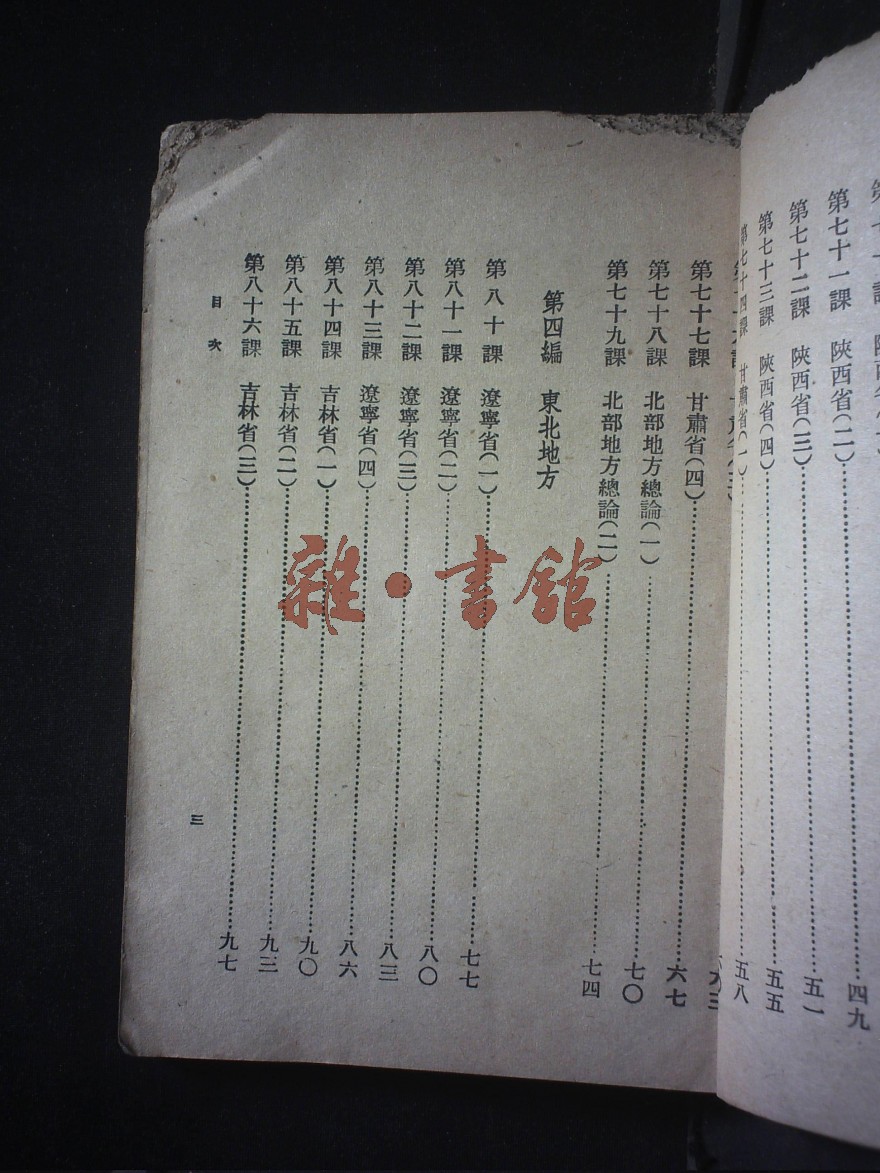 第七十一課 陝西省(二)……四九
第七十二課 陝西省(三)……五一
第七十三課 陝西省(四)……五五
第七十四課 甘肅省(一)……五八
第七十七課 甘肅省(四)……六七
第七十八課 北部地方總論(一)……七〇
第七十九課 北部地方總論(二)……七四
第四編 東北地方
第八十課 遼寧省(一)……七七
第八十一課 遼寧省(二)……八〇
第八十二課 遼寧省(三)……八三
第八十三課 遼寧省(四)……八六
第八十四課 吉林省(一)……九〇
第八十五課 吉林省(二)……九三
第八十六課 吉林省(三)……九七
目次
三
雜·書館